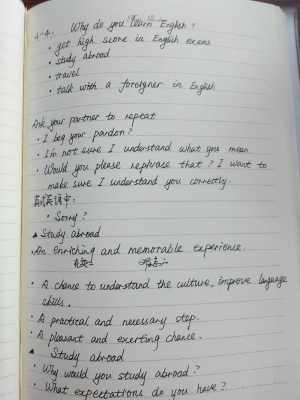 4-4. Why do you learn English?
• get high score in English exams
• study abroad
• travel
• talk with a foreigner in English
Ask your partner to repeat
• I beg your pardon?
• I'm not sure I understand what you mean.
• Would you please rephrase that? I want to
make sure I understand you correctly.
英式英语中:
• Sorry?
▲ Study abroad
• An enriching and memorable experience.
• A chance to understand the culture, improve language
skills.
• A practical and necessary step.
• A pleasant and exerting chance.
▲ Study abroad
• Why would you study abroad?
• What expectations do you have?